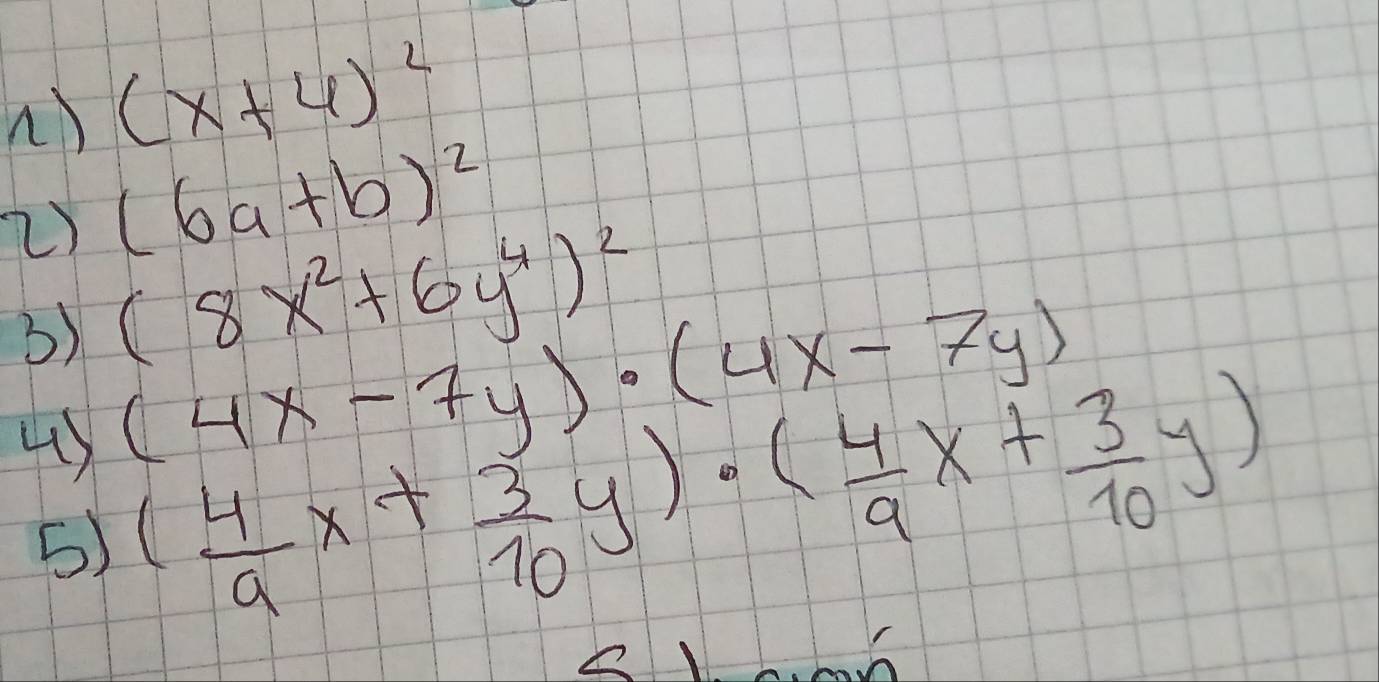 1) (x+4)²
2) (6a+b)²
3) (8x²+6y⁴)²
4) (4x-7y)·(4x-7y)
5) (4/9x+3/10y)·(4/9x+3/10y)